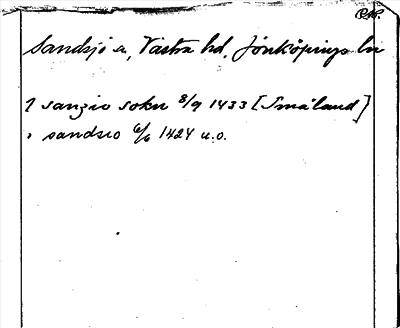 RAP.
Sandsjö sn, Västra hd, Jönköpings ln
i sanzio sokn 8/9 1433 [Småland]
" sandzio 6/6 1424 u.o.